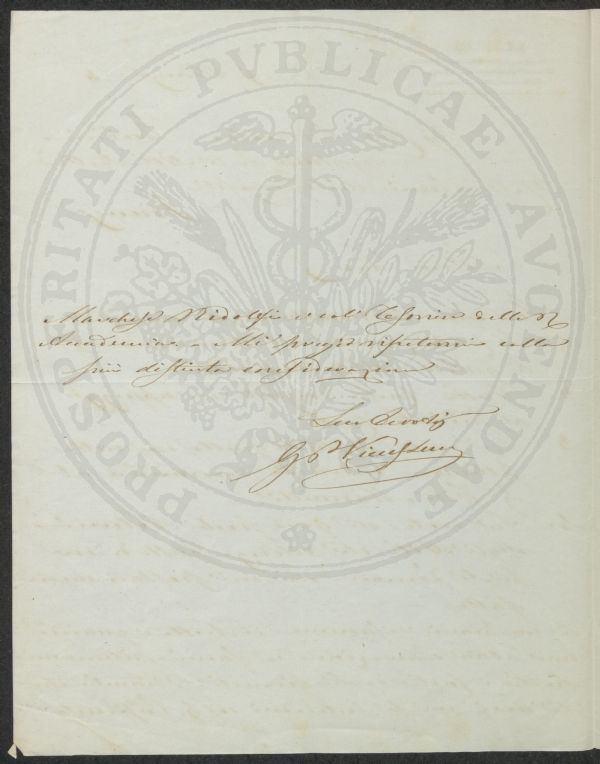 PROSPERITATI PVBLICAE AVGENDAE
Marchese Ridolfi e col Tesoriere della R
Accademia. Mi pregio ripetermi colla
più distinta considerazione
Suo Devotis
G P Vieusseux